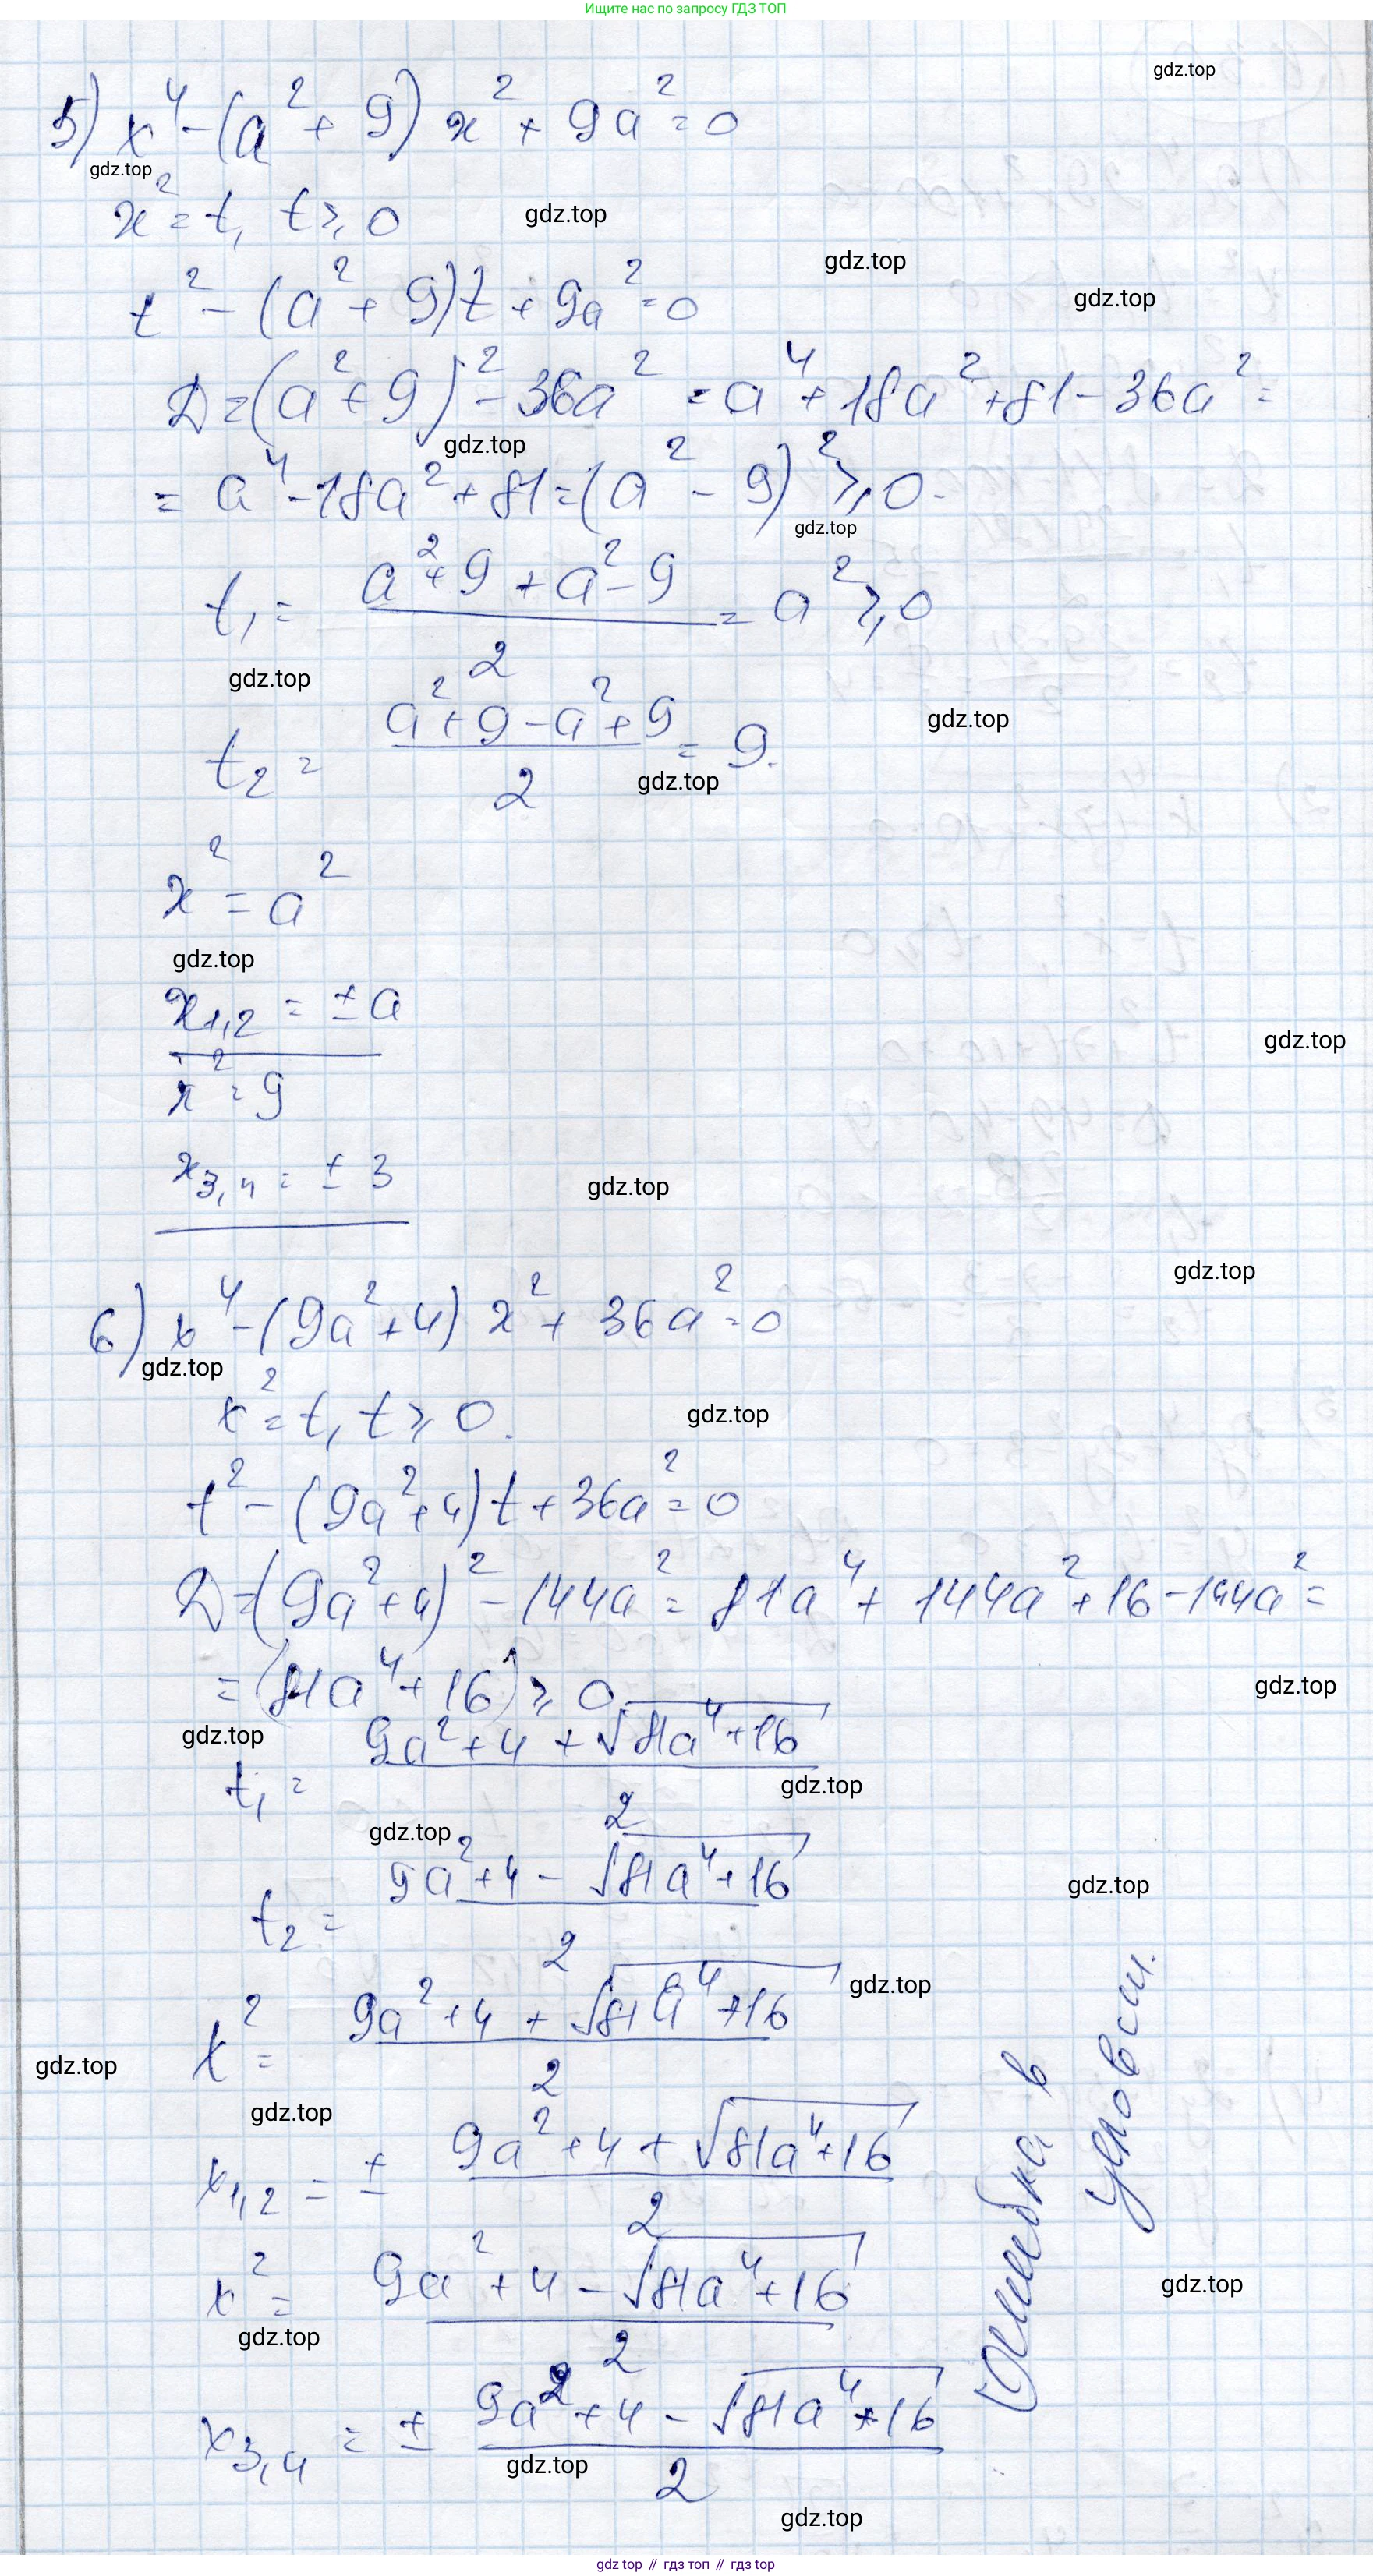 Ищите нас по запросу ГДЗ ТОП
gdz.top
5) x⁴ - (a² + 9) x² + 9a² = 0
gdz.top
x² = t, t ≥ 0
gdz.top
gdz.top
t² - (a² + 9)t + 9a² = 0
gdz.top
D = (a² + 9)² - 36a² = a⁴ + 18a² + 81 - 36a² =
gdz.top
= a⁴ - 18a² + 81 = (a² - 9)² ≥ 0.
gdz.top
t₁ = (a² + 9 + a² - 9)/2 = a² ≥ 0
gdz.top
gdz.top
t₂ = (a² + 9 - a² + 9)/2 = 9.
gdz.top
x² = a²
gdz.top
x₁,₂ = ± a
gdz.top
x² = 9
x₃,₄ = ± 3
gdz.top
gdz.top
6) x⁴ - (9a² + 4) x² + 36a² = 0
gdz.top
x² = t, t ≥ 0.
gdz.top
t² - (9a² + 4)t + 36a² = 0
D = (9a² + 4)² - 144a² = 81a⁴ + 144a² + 16 - 144a² =
= (81a⁴ + 16) ≥ 0
gdz.top
gdz.top
t₁ = (9a² + 4 + √(81a⁴ + 16))/2
gdz.top
gdz.top
t₂ = (9a² + 4 - √(81a⁴ + 16))/2
gdz.top
gdz.top
x² = (9a² + 4 + √(81a⁴ + 16))/2
gdz.top
gdz.top
x₁,₂ = ± (9a² + 4 + √(81a⁴ + 16))/2
x² = (9a² + 4 - √(81a⁴ + 16))/2
gdz.top
gdz.top
x₃,₄ = ± (9a² + 4 - √(81a⁴ + 16))/2
gdz.top
gdz.top
(Ошибка в
условии.
gdz top // гдз топ // gdz.top